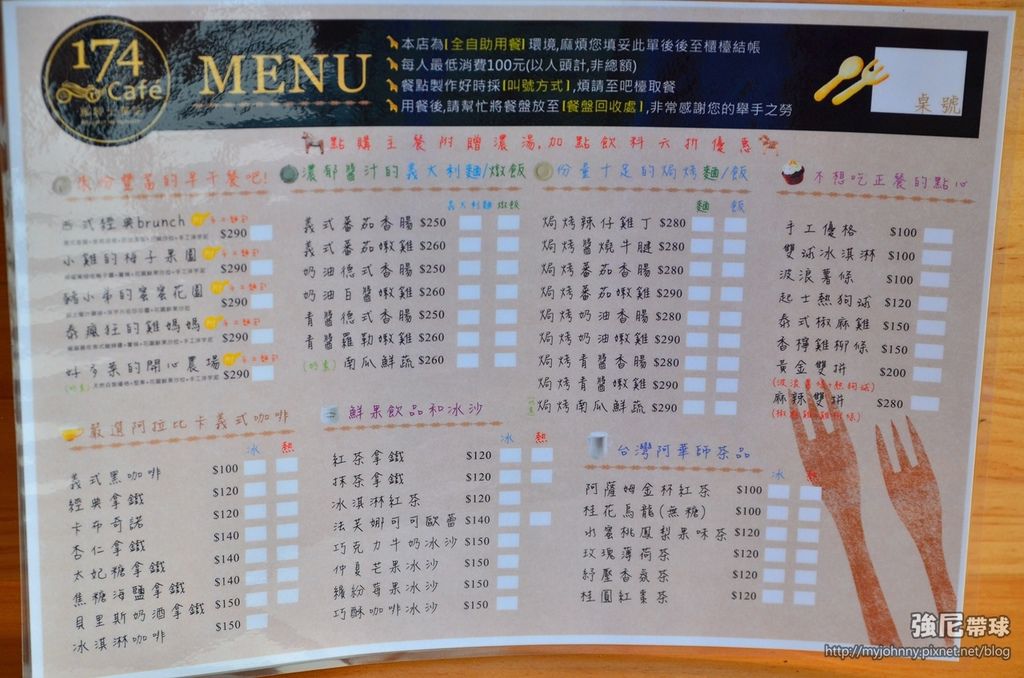 174
Café
MENU
本店為【全自助用餐】環境,麻煩您填妥此單後後至櫃檯結帳
每人最低消費100元(以人頭計,非總額)
餐點製作好時採【叫號方式】,煩請至吧檯取餐
用餐後,請幫忙將餐盤放至【餐盤回收處】,非常感謝您的舉手之勞
桌號
點購主餐附贈濃湯,加點飲料六折優惠
豐富的早午餐吧!
西式經典brunch $290
小雞的梅子果園 $290
豬小弟的蜜蜜花園 $290
泰瘋狂的雞媽媽 $290
好多菜的開心農場 $290
濃郁醬汁的義大利麵/燉飯
義大利麵 燉飯
義式番茄香腸 $250
義式番茄嫩雞 $260
奶油德式香腸 $250
奶油白醬嫩雞 $260
青醬德式香腸 $250
青醬羅勒嫩雞 $260
(奶素) 南瓜鮮蔬 $260
份量十足的焗烤麵/飯
麵 飯
焗烤辣仔雞丁 $280
焗烤醬燒牛腱 $280
焗烤番茄香腸 $280
焗烤番茄嫩雞 $290
焗烤奶油香腸 $280
焗烤青醬香腸 $280
焗烤青醬嫩雞 $290
焗烤南瓜鮮蔬 $290
不想吃正餐的點心
手工優格 $100
雙球冰淇淋 $100
波浪薯條 $100
起士熱狗球 $120
泰式椒麻雞 $150
香檸雞柳條 $150
黃金雙拼 $200
(波浪薯條+熱狗球)
麻辣雙拼 $280
嚴選阿拉比卡義式咖啡
冰 熱
義式黑咖啡 $100
經典拿鐵 $120
卡布奇諾 $120
杏仁拿鐵 $140
太妃糖拿鐵 $140
焦糖海鹽拿鐵 $140
貝里斯奶酒拿鐵 $150
冰淇淋咖啡 $150
鮮果飲品和冰沙
冰 熱
紅茶拿鐵 $120
抹茶拿鐵 $120
冰淇淋紅茶 $120
法芙娜可可歐蕾 $140
巧克力牛奶冰沙 $150
仲夏芒果冰沙 $150
繽紛莓果冰沙 $150
巧酥咖啡冰沙 $150
台灣阿華師茶品
冰
阿薩姆金杯紅茶 $100
桂花烏龍(無糖) $100
水蜜桃鳳梨果味茶 $120
玫瑰薄荷茶 $120
紓壓香氛茶 $120
桂圓紅棗茶 $120
強尼帶球
http://myjohnny.pixnet.net/blog